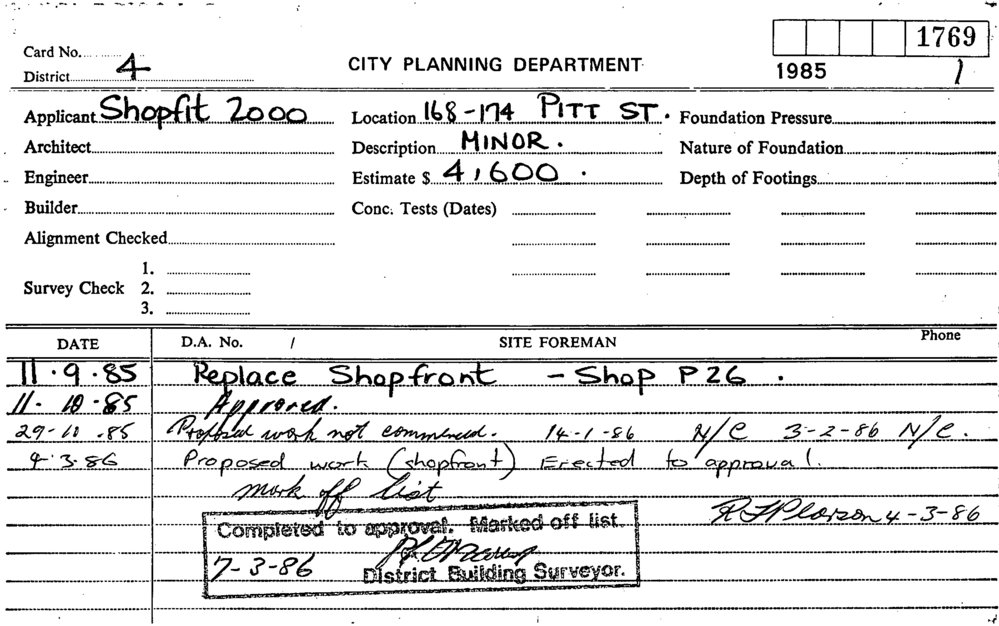 Card No.
1769
District 4
CITY PLANNING DEPARTMENT
1985 1
Applicant Shopfit 2000 Location 168-174 PITT ST. Foundation Pressure
Architect Description MINOR. Nature of Foundation
Engineer Estimate $ 4,600. Depth of Footings
Builder Conc. Tests (Dates)
Alignment Checked
1.
Survey Check 2.
3.
DATE D.A. No. / SITE FOREMAN Phone
11.9.85 Replace Shopfront - Shop P26.
11-10-85 Approved.
29-10-85 Proposed work not commenced. 14-1-86 N/C 3-2-86 N/C.
4.3.86 Proposed work (shopfront) Erected to approval.
mark off list
4-3-86
Completed to approval. Marked off list.
7-3-86
District Building Surveyor.